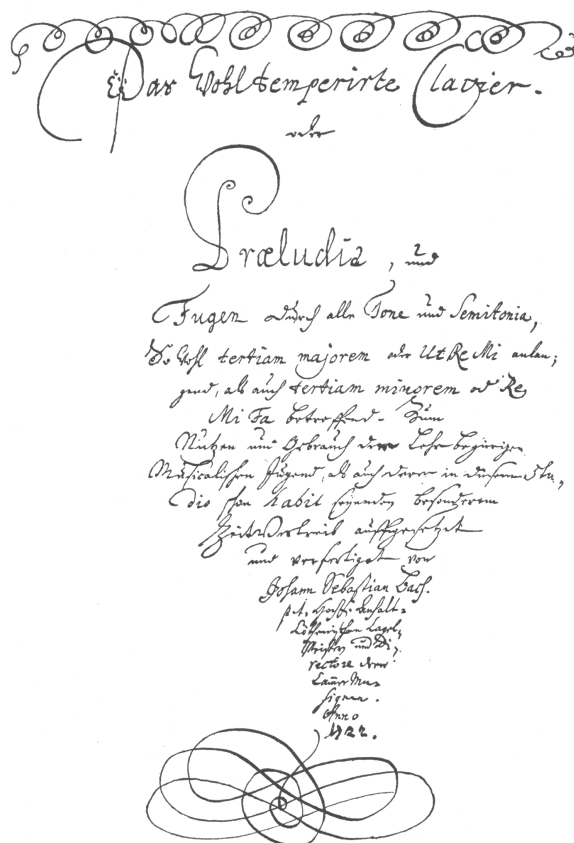 Das Wohltemperirte Clavier.
oder
Præludia, und
Fugen durch alle Tone und Semitonia,
So wohl tertiam majorem oder Ut Re Mi anlan,
gend, als auch tertiam minorem od Re
Mi Fa betreffend. Zum
Nutzen und Gebrauch der Lehrbegierigen
Musicalischen Jugend, als auch derer in diesem Stu,
dio schon habil seyenden besonderem
Zeitvertreib auffgesetzet
und verfertiget von
Johann Sebastian Bach.
p. t. Hochfl. Anhalt-
Cöthenischen Capel-
Meistern und Di-
rectore derer
Cammer Mu-
siquen.
Anno
1722.